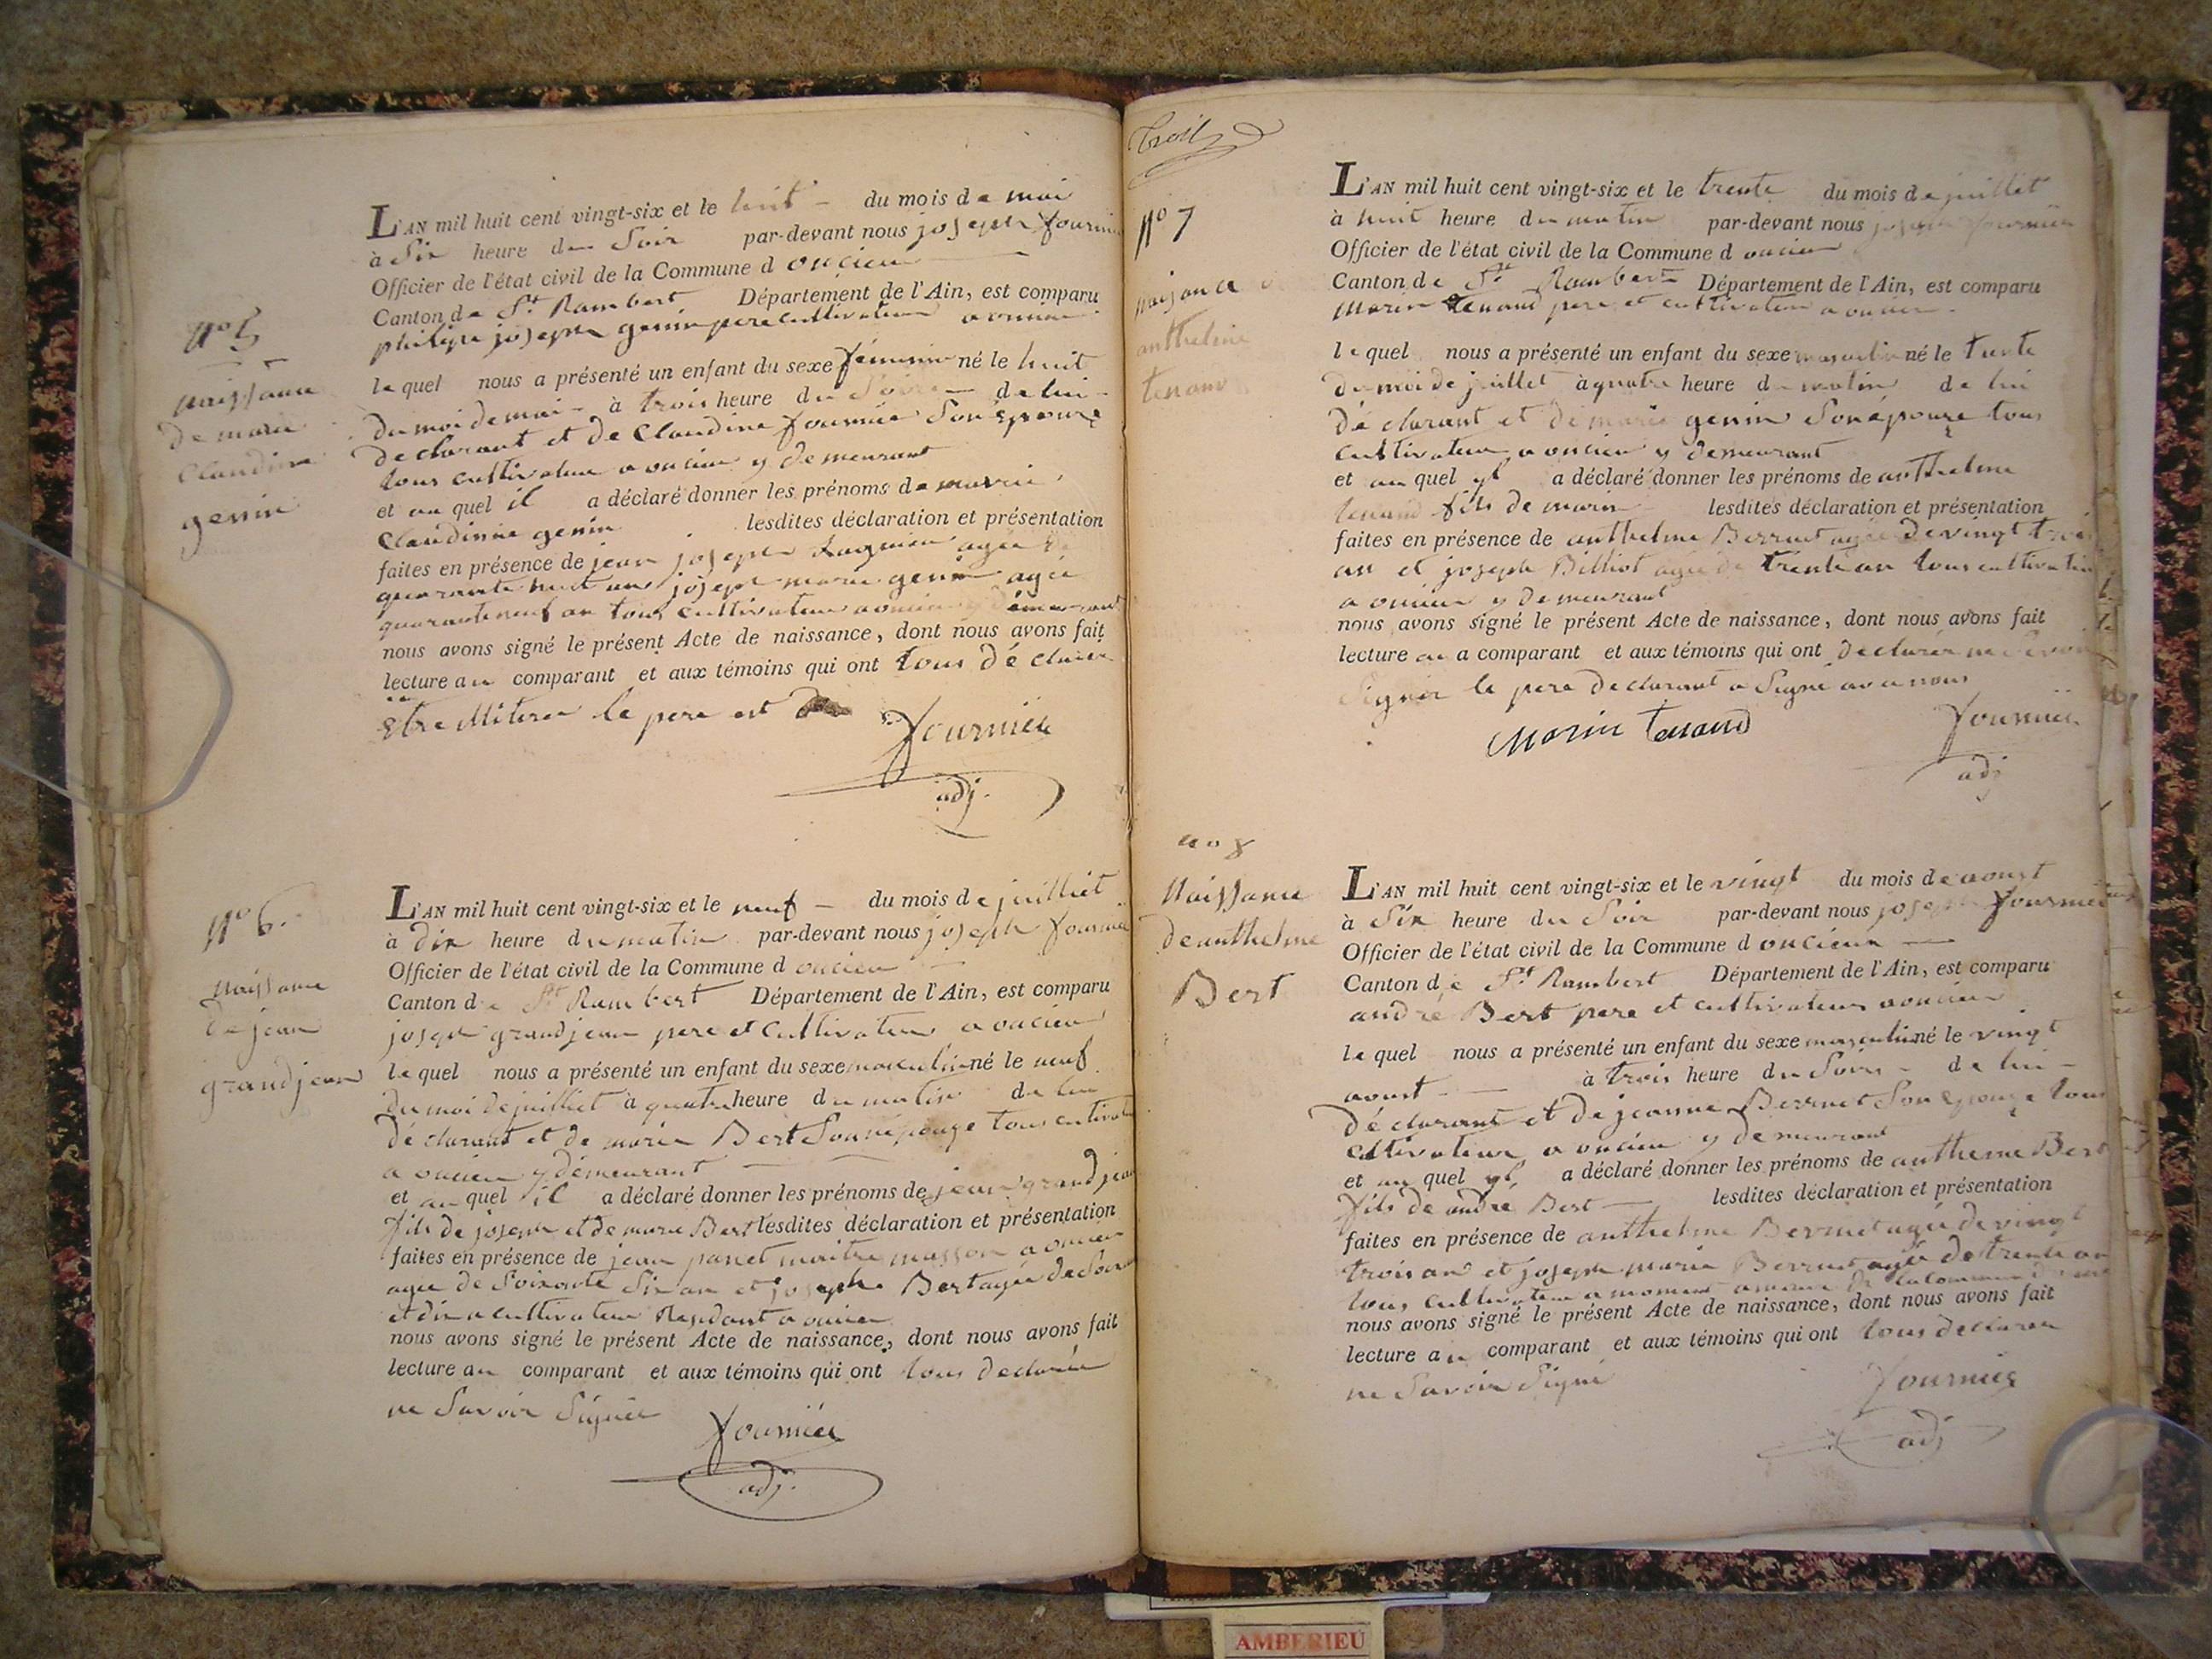 N° 5
naissance
de marie
Claudine
genin
L'AN mil huit cent vingt-six et le huit du mois de mai
à Six heure du Soir par-devant nous joseph fournier
Officier de l'état civil de la Commune d oncieu
Canton de St Rambert Département de l'Ain, est comparu
philipe joseph genin pere cultivateur a oncieu
lequel nous a présenté un enfant du sexe féminin né le huit
du moi de mai à trois heure du Soire de lui
declarant et de Claudine fournier Son épouze
tous cultivateur a oncieu y demeurant
et au quel il a déclaré donner les prénoms de marie
Claudinne genin lesdites déclaration et présentation
faites en présence de jean joseph agée de
quarante huit ans joseph marie genin agée
quarante neuf an tous cultivateur a oncieu y demeurant
nous avons signé le présent Acte de naissance, dont nous avons fait
lecture au comparant et aux témoins qui ont tous déclarer
Etre illiterer le pere est
fournier
adj.
N° 6.
naissance
de jean
grandjean
L'AN mil huit cent vingt-six et le neuf du mois de juilliet
à dix heure du matin par-devant nous joseph fournier
Officier de l'état civil de la Commune d oncieu
Canton de St Rambert Département de l'Ain, est comparu
joseph grandjean pere et Cultivateur a oncieu
lequel nous a présenté un enfant du sexe masculin né le neuf
du moi de juilliet à quatre heure du matin de lui
déclarant et de marie Bert Son népouze tous cultivate
a oncieu y demeurant
et au quel il a déclaré donner les prénoms de jean grandjean
fils de joseph et de marie Bert lesdites déclaration et présentation
faites en présence de jean panet maitre masson a oncieu
agée de Soixante Six an et joseph Bert agée de Soixante
et dix a cultivateur Residant a oncieu
nous avons signé le présent Acte de naissance, dont nous avons fait
lecture au comparant et aux témoins qui ont tous declarée
ne Savoir Signée
fournier
adj.
trois
N° 7
naisance
anthelme
tenand
L'AN mil huit cent vingt-six et le trente du mois de juillet
à huit heure du matin par-devant nous joseph fournier
Officier de l'état civil de la Commune d oncieu
Canton de St Rambert Département de l'Ain, est comparu
Marin tenand pere et cultivateur a oncieu
lequel nous a présenté un enfant du sexe masculin né le trente
du moi de juillet à quatre heure du matin de lui
déclarant et de marie genin Son épouze tous
cultivateur a oncieu y demeurant
et au quel yl a déclaré donner les prénoms de anthelme
tenand fils de marin lesdites déclaration et présentation
faites en présence de anthelme Berruet agée de vingt trois
an et joseph Billiot agée de trente an tous cultivateur
a oncieu y demeurant
nous avons signé le présent Acte de naissance, dont nous avons fait
lecture au a comparant et aux témoins qui ont declarér ne Savoir
Signer le pere declarant a Signé avec nous
Marin tenand
fournier
adj
no 8
Naissance
de anthelme
Bert
L'AN mil huit cent vingt-six et le vingt du mois de aoust
à Six heure du Soir par-devant nous joseph fournier
Officier de l'état civil de la Commune d oncieux
Canton de St Rambert Département de l'Ain, est comparu
andré Bert pere et cultivateur a oncieu
lequel nous a présenté un enfant du sexe masculin né le vingt
aoust à trois heure du Soire de lui
déclarant et de jeanne Berruet Son épouze tous
cultivateur a oncieu y demeurant
et au quel yl a déclaré donner les prénoms de antheme Bert
fils de andré Bert lesdites déclaration et présentation
faites en présence de anthelme Berruet agée de vingt
trois an et joseph marie Berruet agée de trente an
tous cultivateur a de la commune
nous avons signé le présent Acte de naissance, dont nous avons fait
lecture au comparant et aux témoins qui ont tous declarer
ne Savoir Signé
fournier
adj
AMBERIEU